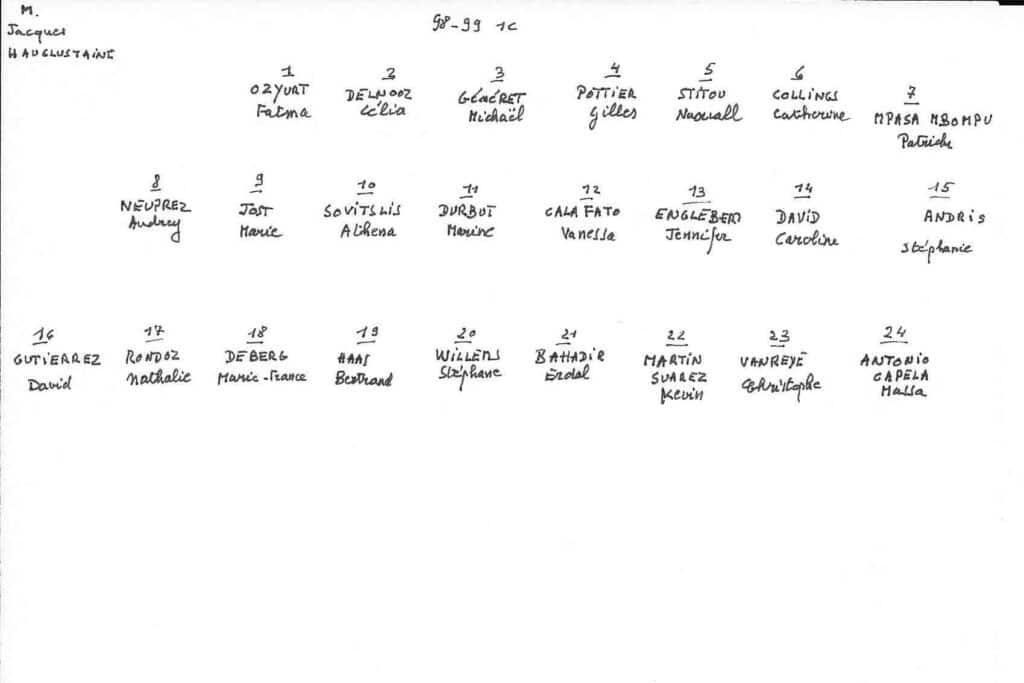 M.
Jacques
HAUGLUSTAINE
98-99 1C
1 2 3 4 5 6 7
OZYURT DELNOOZ GÉNÉRET POTTIER STITOU COLLINGS MPASA MBOMPU
Fatma Célia Michaël Gilles Naouall Catherine Patrick
8 9 10 11 12 13 14 15
NEUPREZ JOST SOVITSLIS DURBUT CALAFATO ENGLEBERT DAVID ANDRIS
Audrey Marie Athena Marine Vanessa Jennifer Caroline Stéphanie
16 17 18 19 20 21 22 23 24
GUTIERREZ RONDOZ DEBERG HAAS WILLEMS BAHADIR MARTIN VANREYÉ ANTONIO
David Nathalie Marie-France Bertrand Stéphane Erdal SUAREZ Christophe CAPELA
Kevin Massa